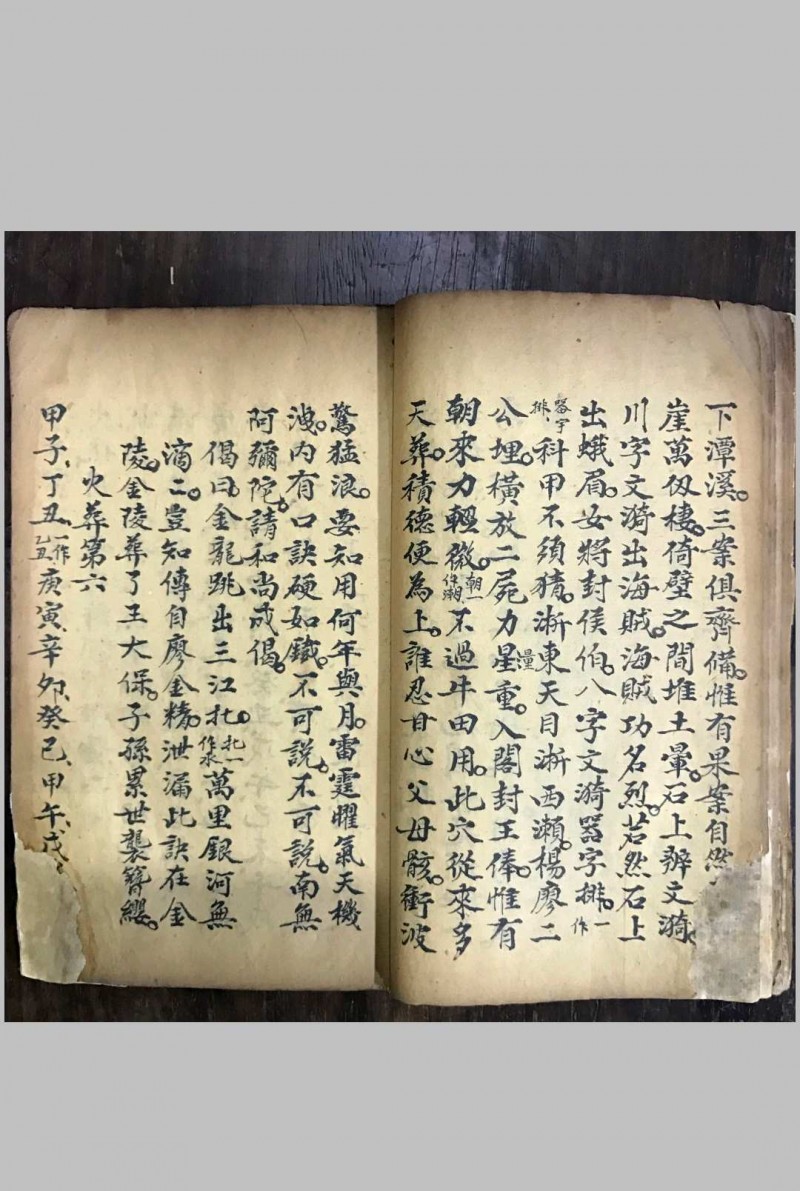 下潭溪。三案俱齊備。惟有果案自然
崖萬仭棲。倚壁之間堆土暈。石上辨文漪。
川字文漪出海賊。海賊功名烈。若然石上
出蛾眉。女將封侯伯。八字文漪器字排。一作
器字排、科甲不須猜。浙東天目浙西瀨。楊廖二
公埋。橫放二屍力量重。入閣封王俸。惟有
朝來力輕微。朝一作潮、不過牛田用。此穴從來多
天葬。積德便為上。誰忍甘心父母骸。衝波
驚猛浪。要知用何年與月。雷霆曜氣天機
洩。內有口訣硬如鐵。不可說。不可說。南無
阿彌陀。請和尚成偈。
偈曰。金龍跳出三江北。北一作水、萬里銀河無
滴二。豈知傳自廖金精。泄漏此訣在金
陵。金陵葬了王大保。子孫累世襲簪纓。
火葬第六
甲子、丁丑、一作乙丑、庚寅、辛卯、癸巳、甲午、戊